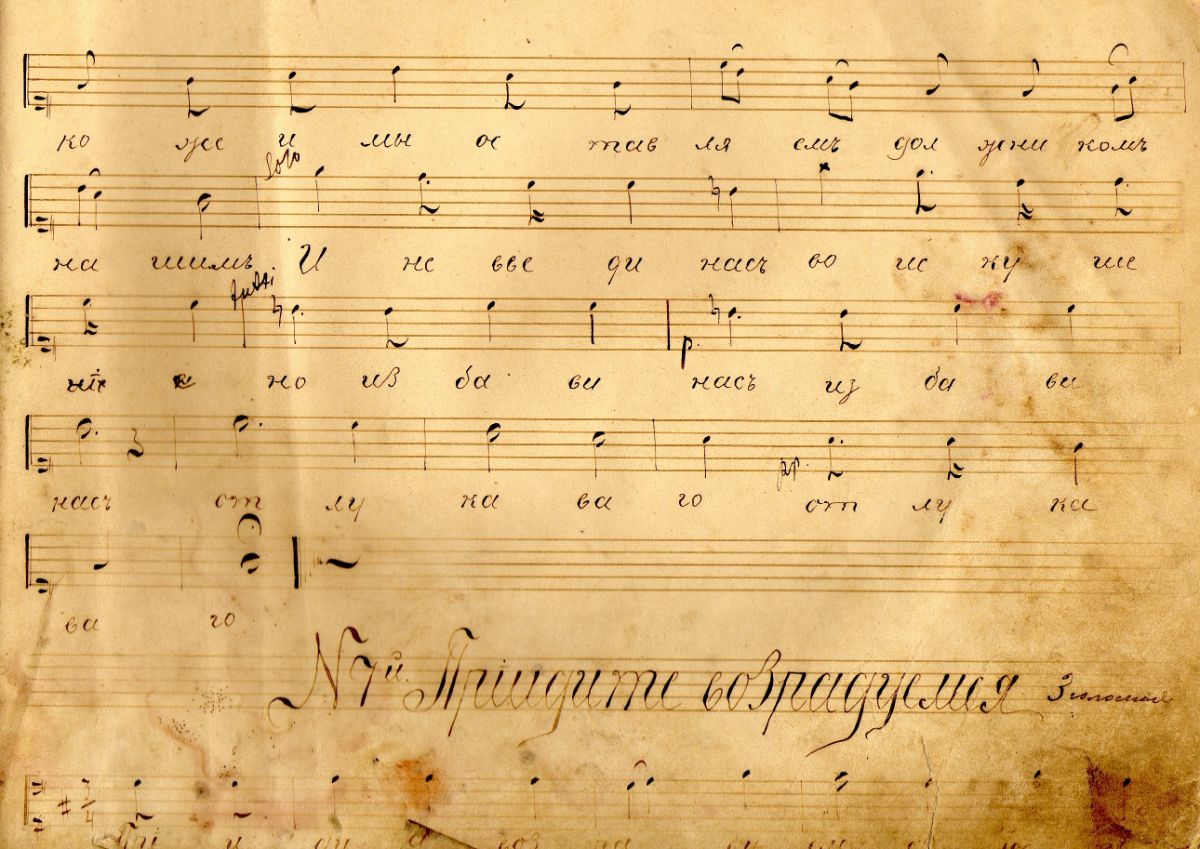 ко же и мы ос тав ля емъ дол жни комъ
Solo
на шимъ И не вве ди насъ во ис ку ше
tutti
нiе но из ба ви насъ из ба ви
p.
насъ от лу ка ва го от лу ка
pp.
ва го
N 7й. Прiидите возрадуемся 3 голосная
3/4